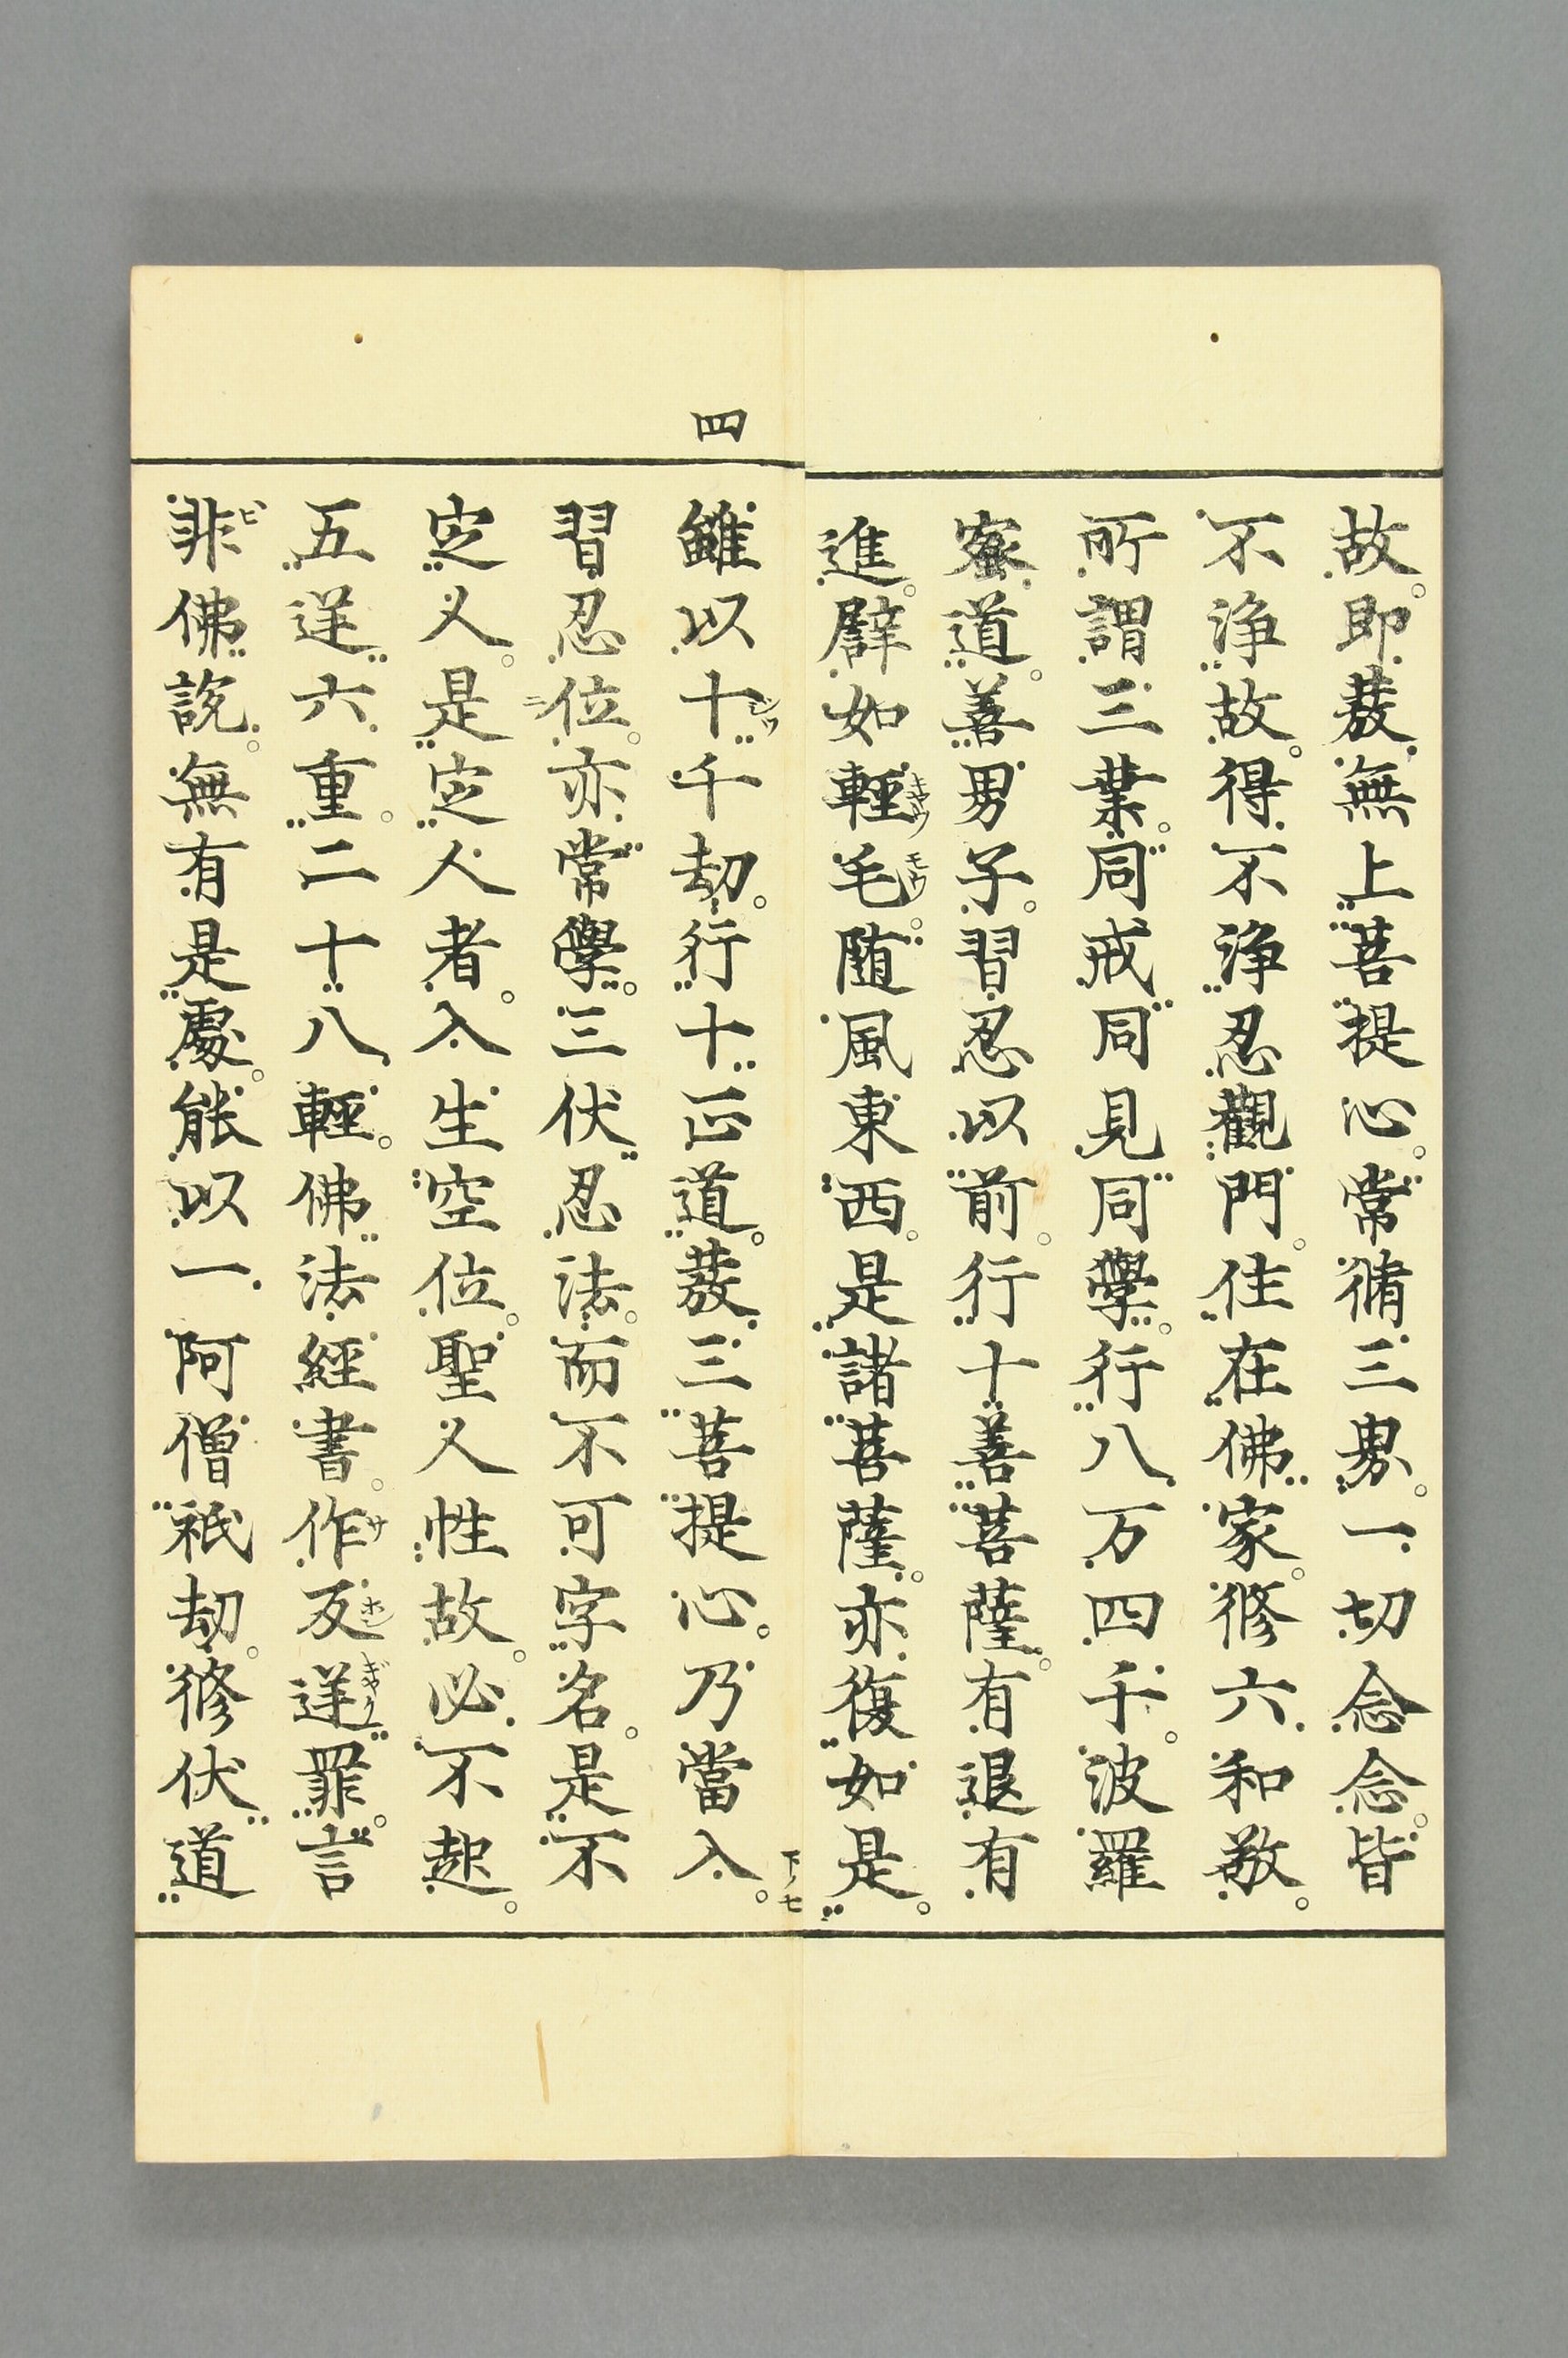 故。即發無上菩提心。常脩三界。一切念念。皆
不淨故。得不淨忍觀門。住在佛家。修六和敬。
所謂三業。同戒同見同學。行八万四千。波羅
蜜道。善男子。習忍以前。行十善菩薩。有退有
進。譬如輕毛。随風東西。是諸菩薩。亦復如是。
キヤウ
モウ
下ノ七
四
雖以十千劫。行十正道。發三菩提心。乃當入。
ジツ
習忍位。亦常學。三伏忍法。而不可字名。是不
ニ
定人。是定人者。入生空位。聖人性故。必不起。
五逆六重。二十八輕。佛法經書。作反逆罪。言
サ
ホン
ギヤク
非佛說。無有是處。能以一阿僧祇劫。修伏道
ヒ